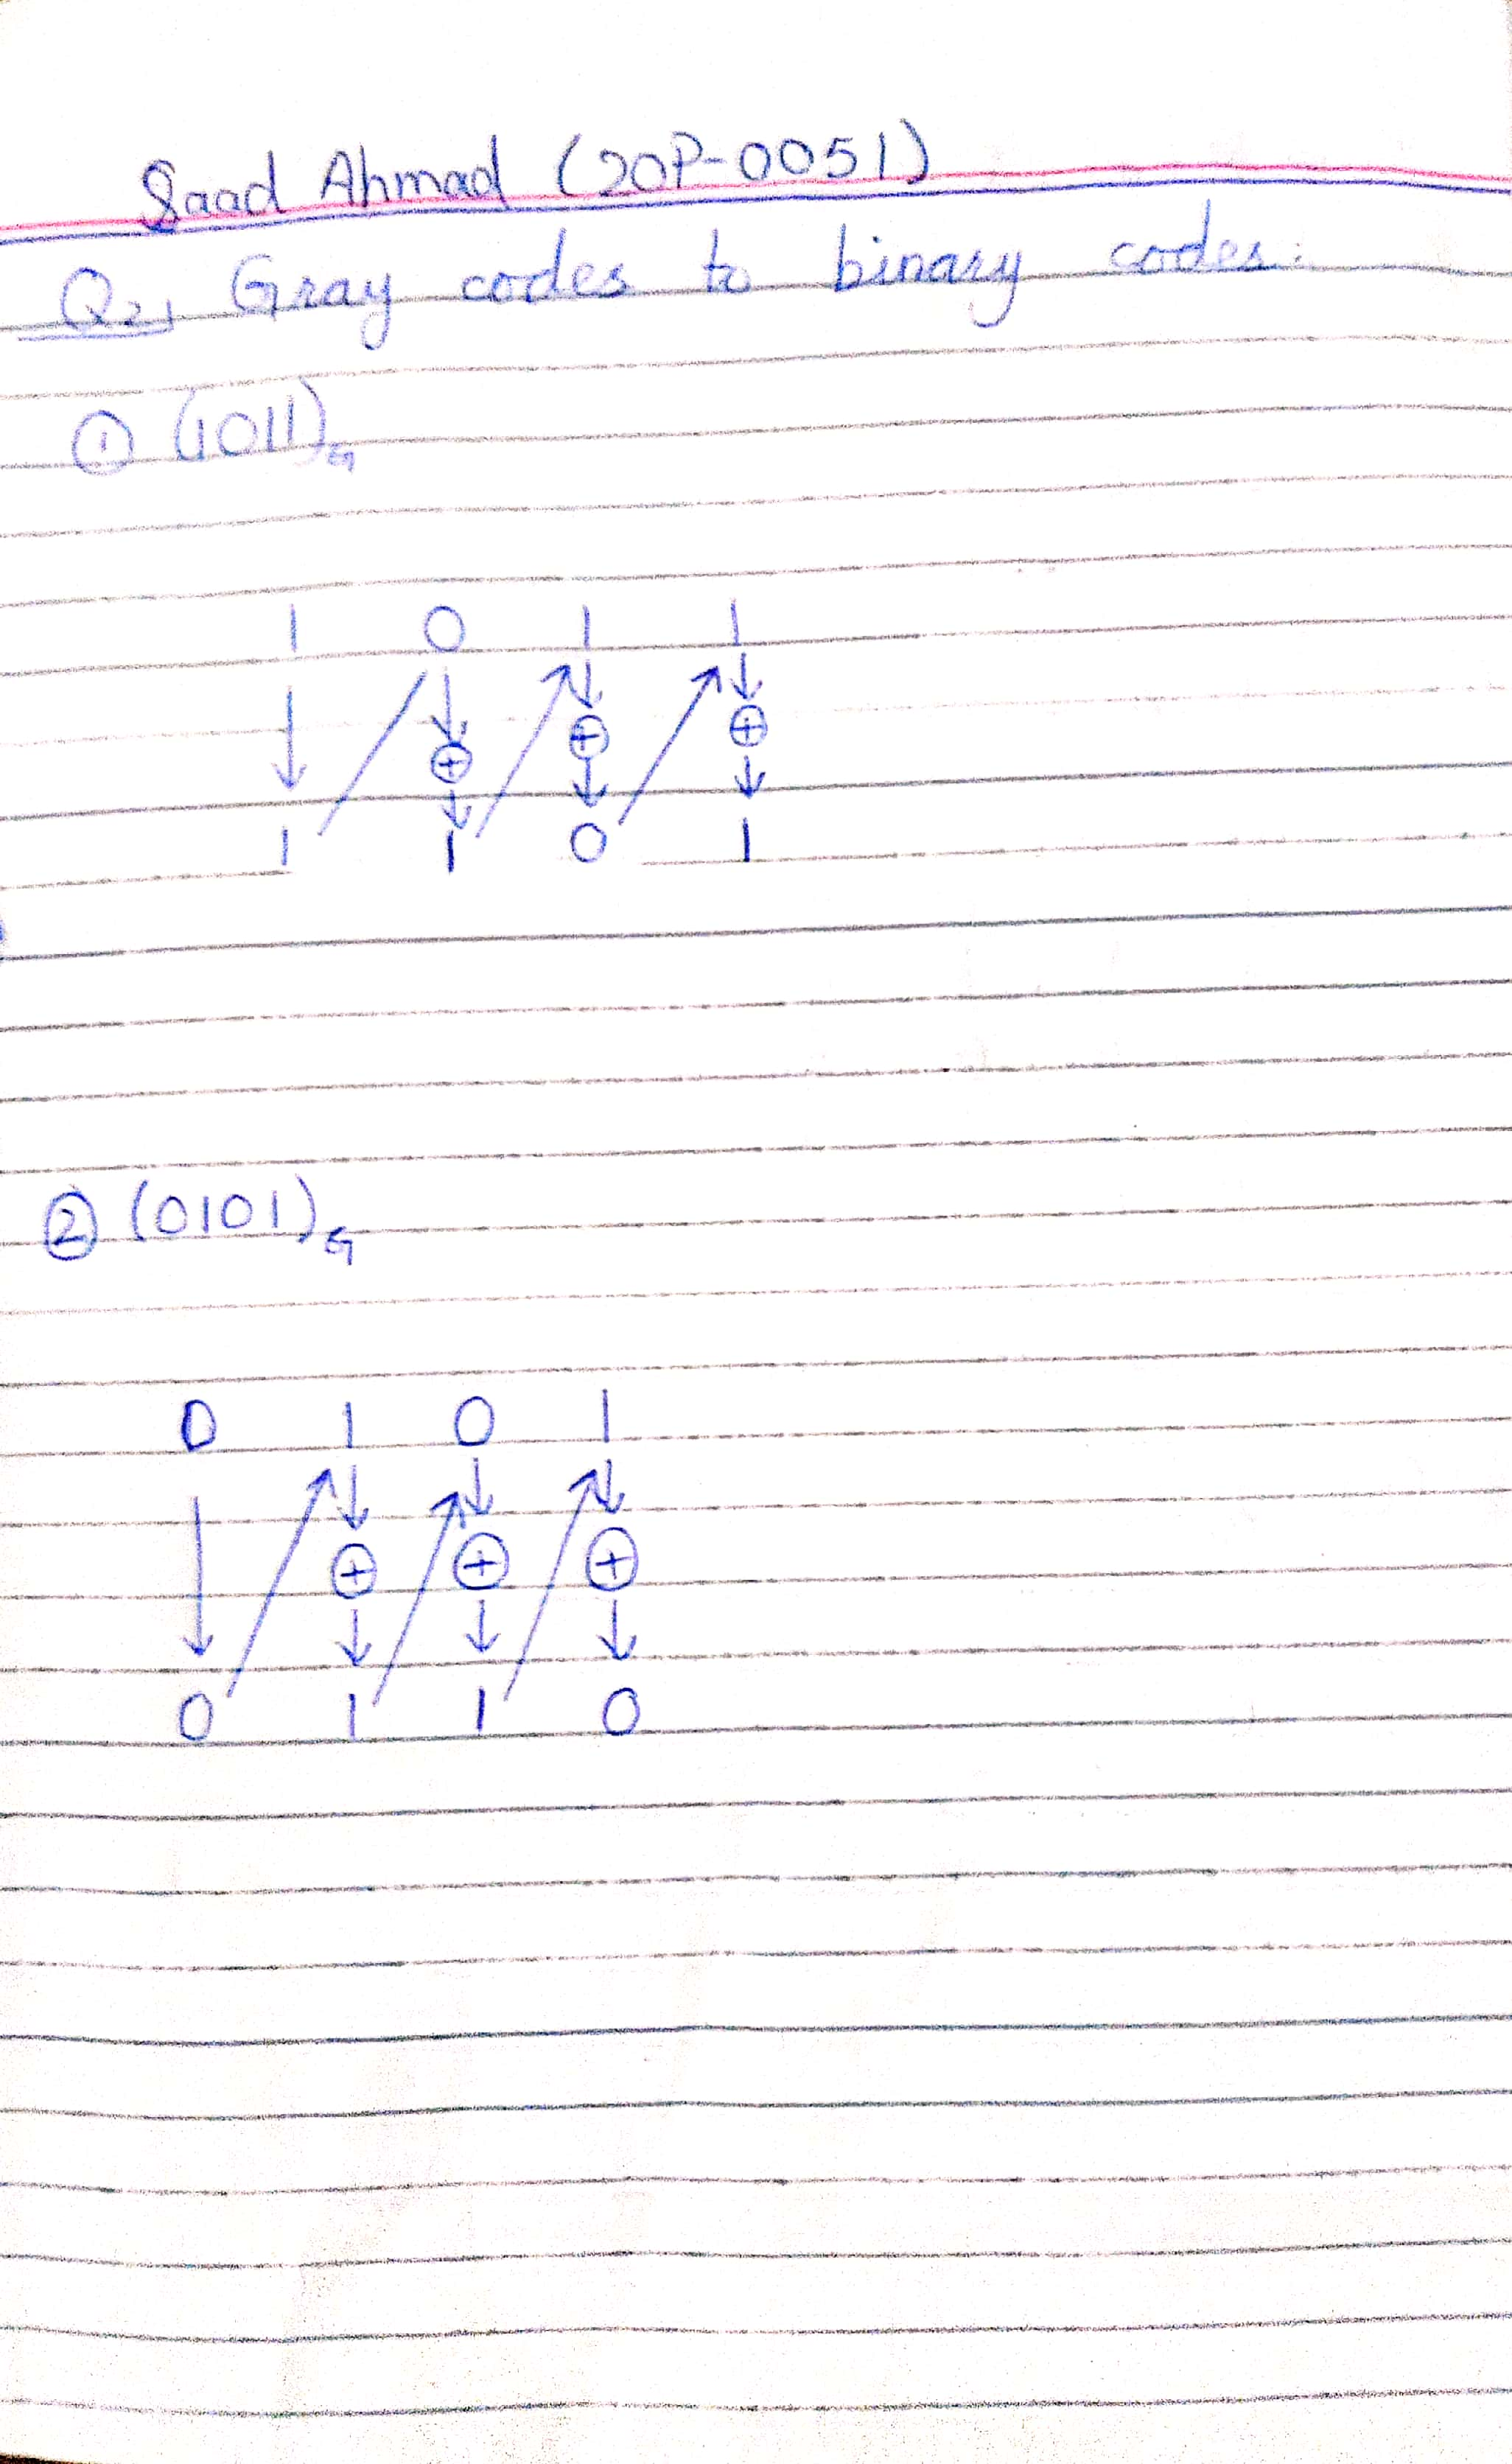 Saad Ahmad (20P-0051)
Q2, Gray codes to binary codes:
① (1011)G
1 0 1 1
⊕ ⊕ ⊕
1 1 0 1
② (0101)G
0 1 0 1
⊕ ⊕ ⊕
0 1 1 0